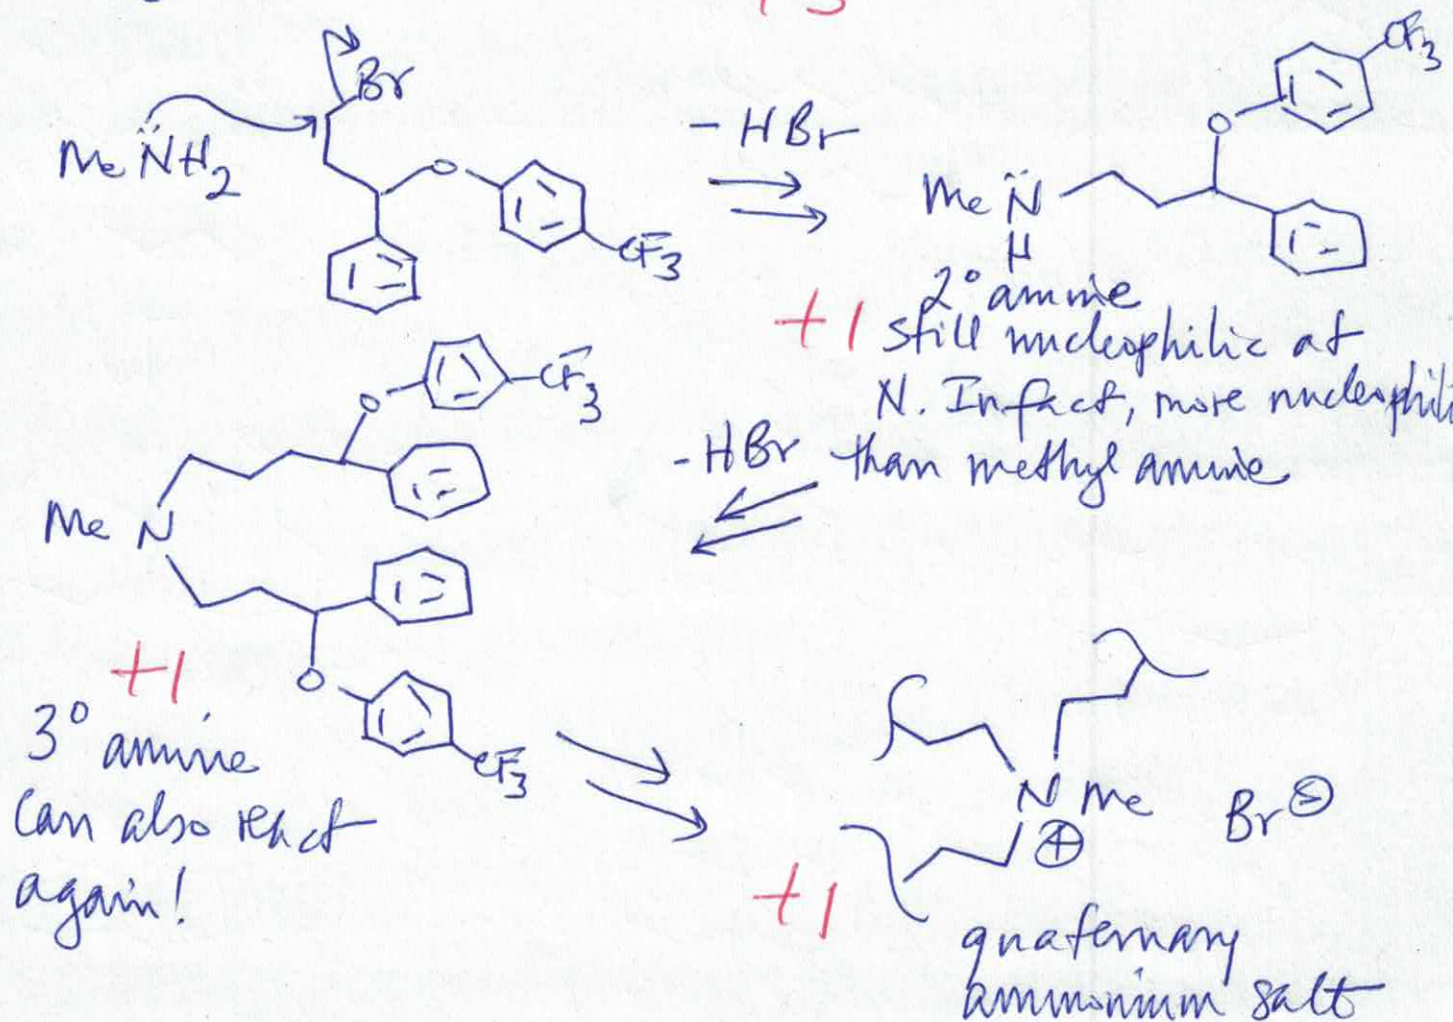 +3
Br
Me N̈H2
O
CF3
- HBr
CF3
O
Me N̈
H
2° amine
+1 still nucleophilic at
N. Infact, more nucleophili
than methyl amine
- HBr
CF3
O
Me N
O
CF3
+1
3° amine
Can also react
again!
N Me
⊕
Br⊖
+1
quaternary
ammonium salt